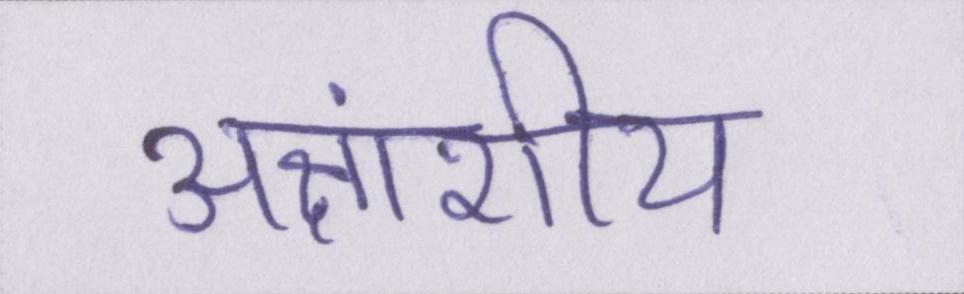 अक्षांशीय